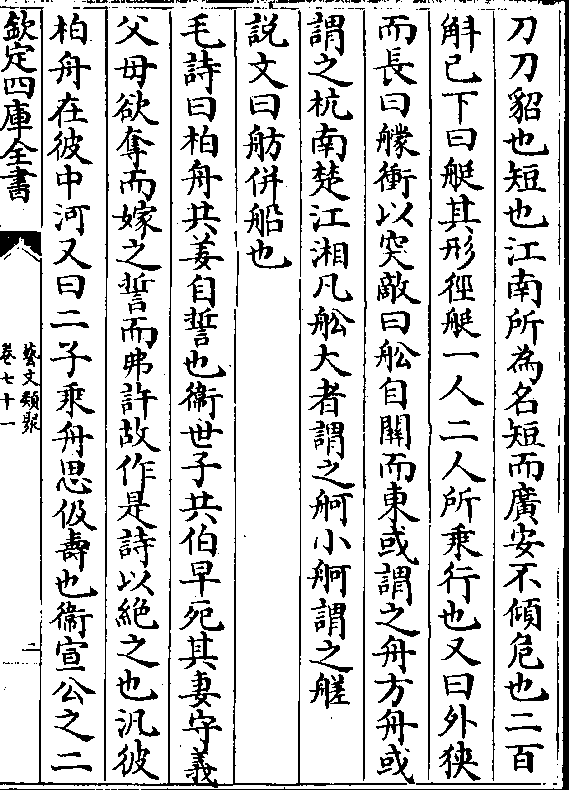 刀刀貂也短也江南所為名短而廣安不傾危也二百
斛已下曰艇其形徑艇一人二人所乗行也又曰外狹
而長曰艨衝以突敵曰舩自關而東或謂之舟方舟或
謂之杭南楚江湘凡舩大者謂之舸小舸謂之艖
説文曰舫併船也
毛詩曰柏舟共姜自誓也衞世子共伯早死其妻守義
父母欲奪而嫁之誓而弗許故作是詩以絶之也汎彼
柏舟在彼中河又曰二子乗舟思伋壽也衞宣公之二
欽定四庫全書
藝文類聚
卷七十一
二